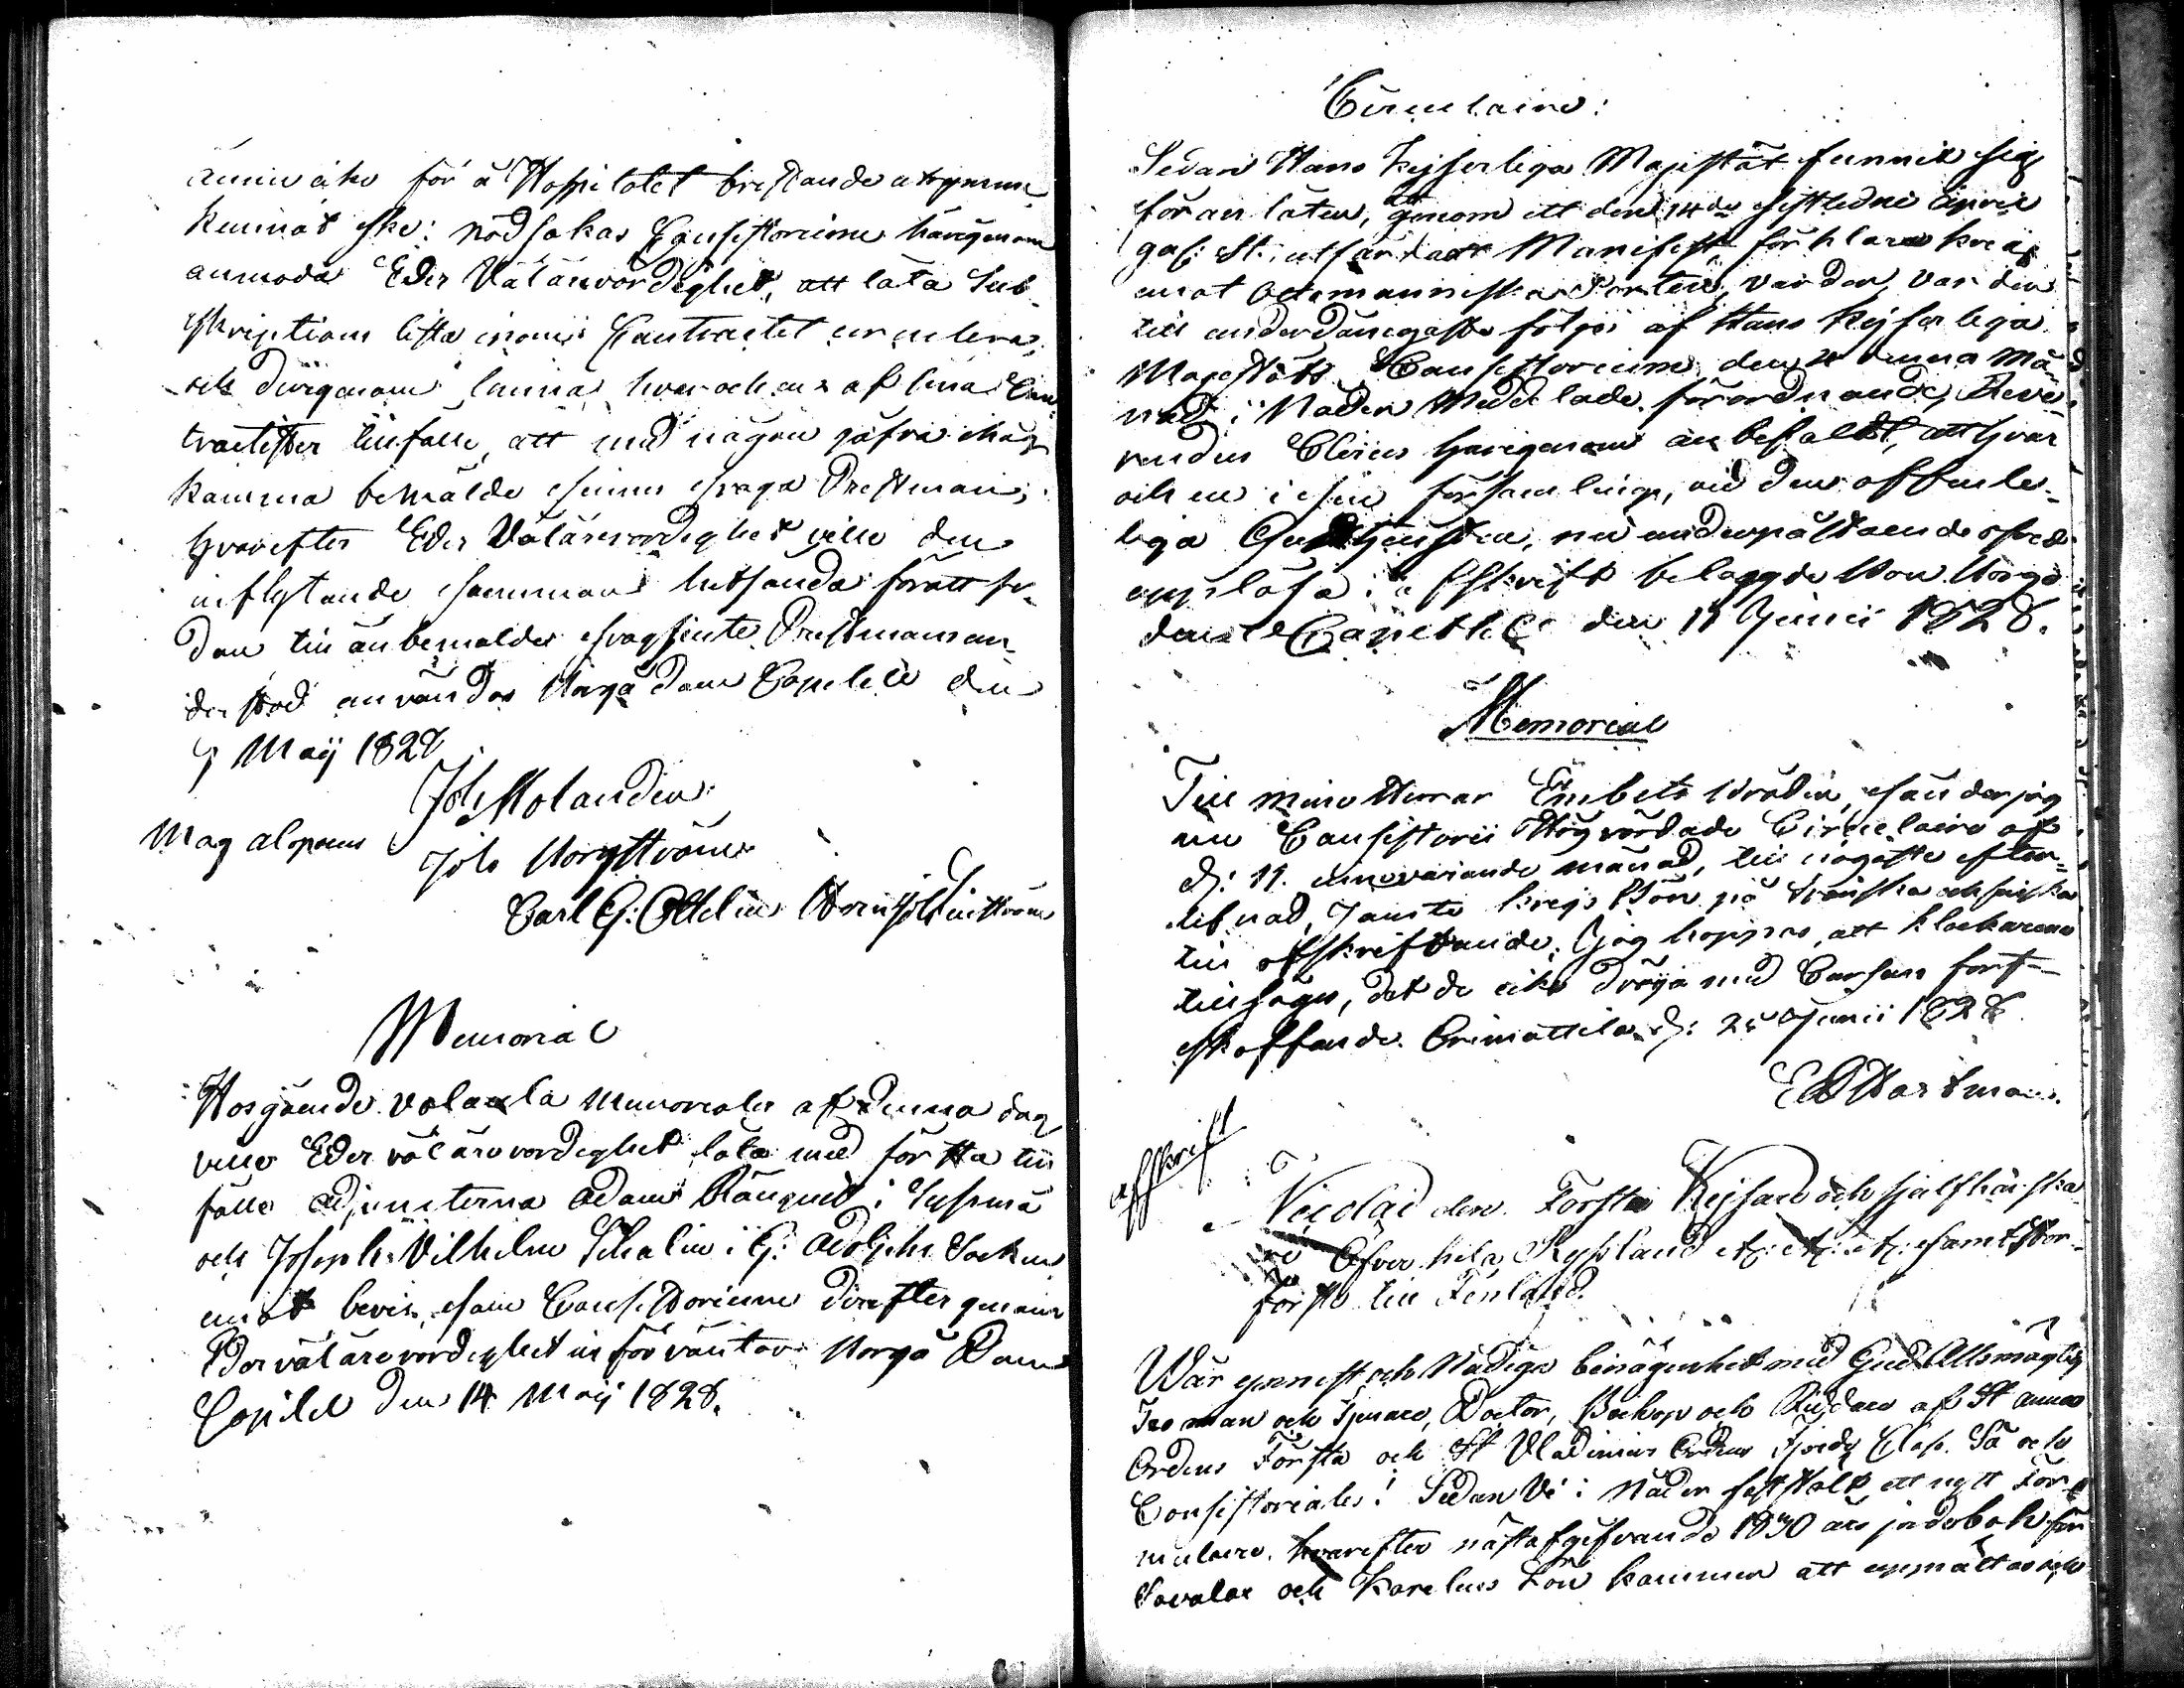 ännu icke för å Hospitalet bristande utrymme
kunnat ske: nödsakas Consistorium härigenom
anmoda Eder Välärevördighet, att låta Sub-
skriptions lista inom Contractet circulera,
och dirigenom lämna hvar och en af sina Con-
tractister tillfälle, att med någon gåfva ihåg
komma bemälde sinnes svaga Prestman;
hvarefter Eder Välärevördighet ville den
inflytande summan hitsända för att se-
dan till änbemälde svagsinte Prestmans un-
derstöd användas Borgå Dom Capitel den
7 Maij 1828
Joh Molander
Mag Alopæus
Joh Borgström
Carl G: Ottelin
Memorial
Hosgående
Memorialer af denna dag
ville Eder välärevördighet låta med första till
fälle Adjuncterna Adam Rönqvist i Sysmä
och Joseph Vilhelm Schalin i G: Adolphs Socken
emot bevis, som Consistorium direfter genom
Eder välärevördighet in förväntar Borgå Dom
Capitel den 14 Maij 1828.
Circulaire:
Sedan Hans Kejserliga Majestät funnit sig
föranlåten, genom ett den 14de sistledne April
gas: St: utfärdadt Manifest, förklara krig
emot Ottomanniska Porten, varder, var der
till underdånigaste följe af Hans Kejserliga
Majestäts Consistorium den denna Må-
nad i Nåder Meddelade förordnande, Reve-
rendus Clerus härigenom anbefaldt, att hvar
och en i sin församling, vid den offente-
liga Gudstjensten,
uppläsa i afskrift belaggde Bön Borgå
Dom Capitel den 11 Junii 1828.
Memorial
Till mine Herrar Embets Bröder, sänder jag
nu Consistorii Högvördade Circulaire af
d: 11. innevarande månad, till nogaste efter-
lefnad, jämte krigs Bön på Svenska och finska
till afskriftande; jag hoppas, att klockarena
tillsäges, det de icke dröja med Cursens fort-
skaffande. Orimattila d: 25 Junii 1828
E Hartman.
Afskrift
Nicolai den Förste Kejsare och sjelfhärska-
re Öfver hela Ryssland etc: etc: etc: samt Stor-
förste till Finland.
Vår ynnest och Nådiga benägenhet med Gud Allsmägtig
Tro man och Tjenare, Doctor, Biskop och Riddare af St Annæ
Ordens Första och St Vladimirs Ordens Fjerde Class. Så ock
Consistoriales! Sedan Vi i Nåder fastställt ett nytt For-
mulaire, hvarefter nästafgifvande 1830 års jordebok för
Savolax och Karelens Län kommer att upprättas och